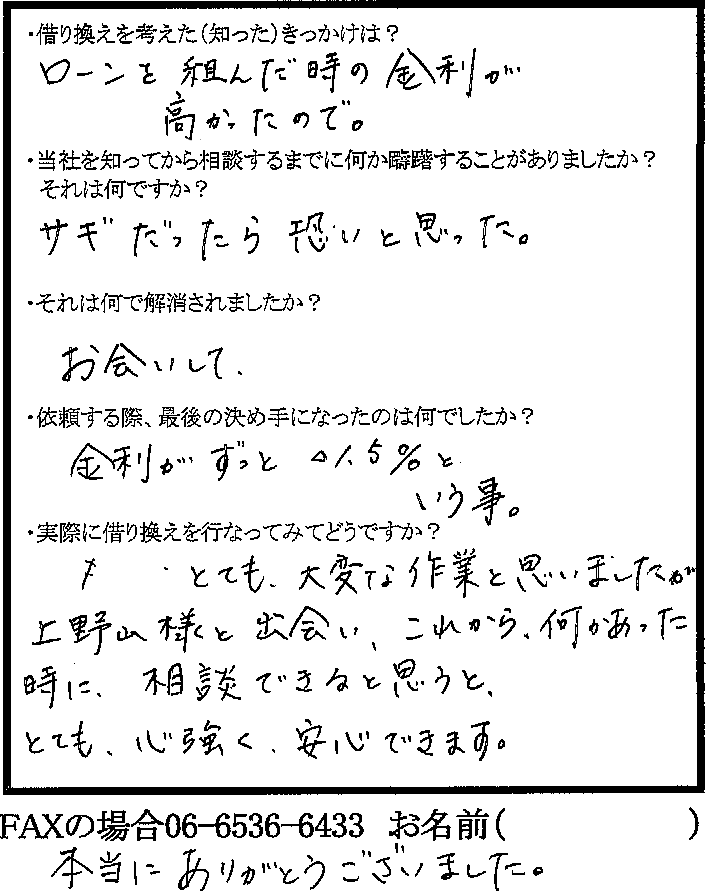 ・借り換えを考えた（知った）きっかけは？
ローンを組んだ時の金利が
高かったので。
・当社を知ってから相談するまでに何か躊躇することがありましたか？
それは何ですか？
サギだったら恐いと思った。
・それは何で解消されましたか？
お会いして、
・依頼する際、最後の決め手になったのは何でしたか？
金利がずっと △1.5％と
いう事。
・実際に借り換えを行なってみてどうですか？
とても、大変な作業と思いましたが
上野山様と出会い、これから、何かあった
時に、相談できると思うと、
とても、心強く、安心できます。
FAXの場合06-6536-6433 お名前（ ）
本当にありがとうございました。